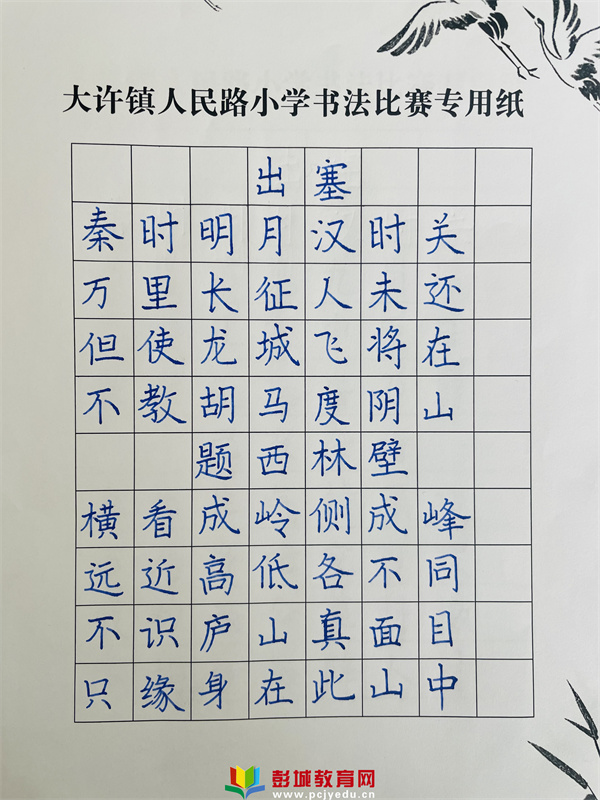 大许镇人民路小学书法比赛专用纸
出塞
秦时明月汉时关
万里长征人未还
但使龙城飞将在
不教胡马度阴山
题西林壁
横看成岭侧成峰
远近高低各不同
不识庐山真面目
只缘身在此山中
彭城教育网
www.pcjyedu.cn